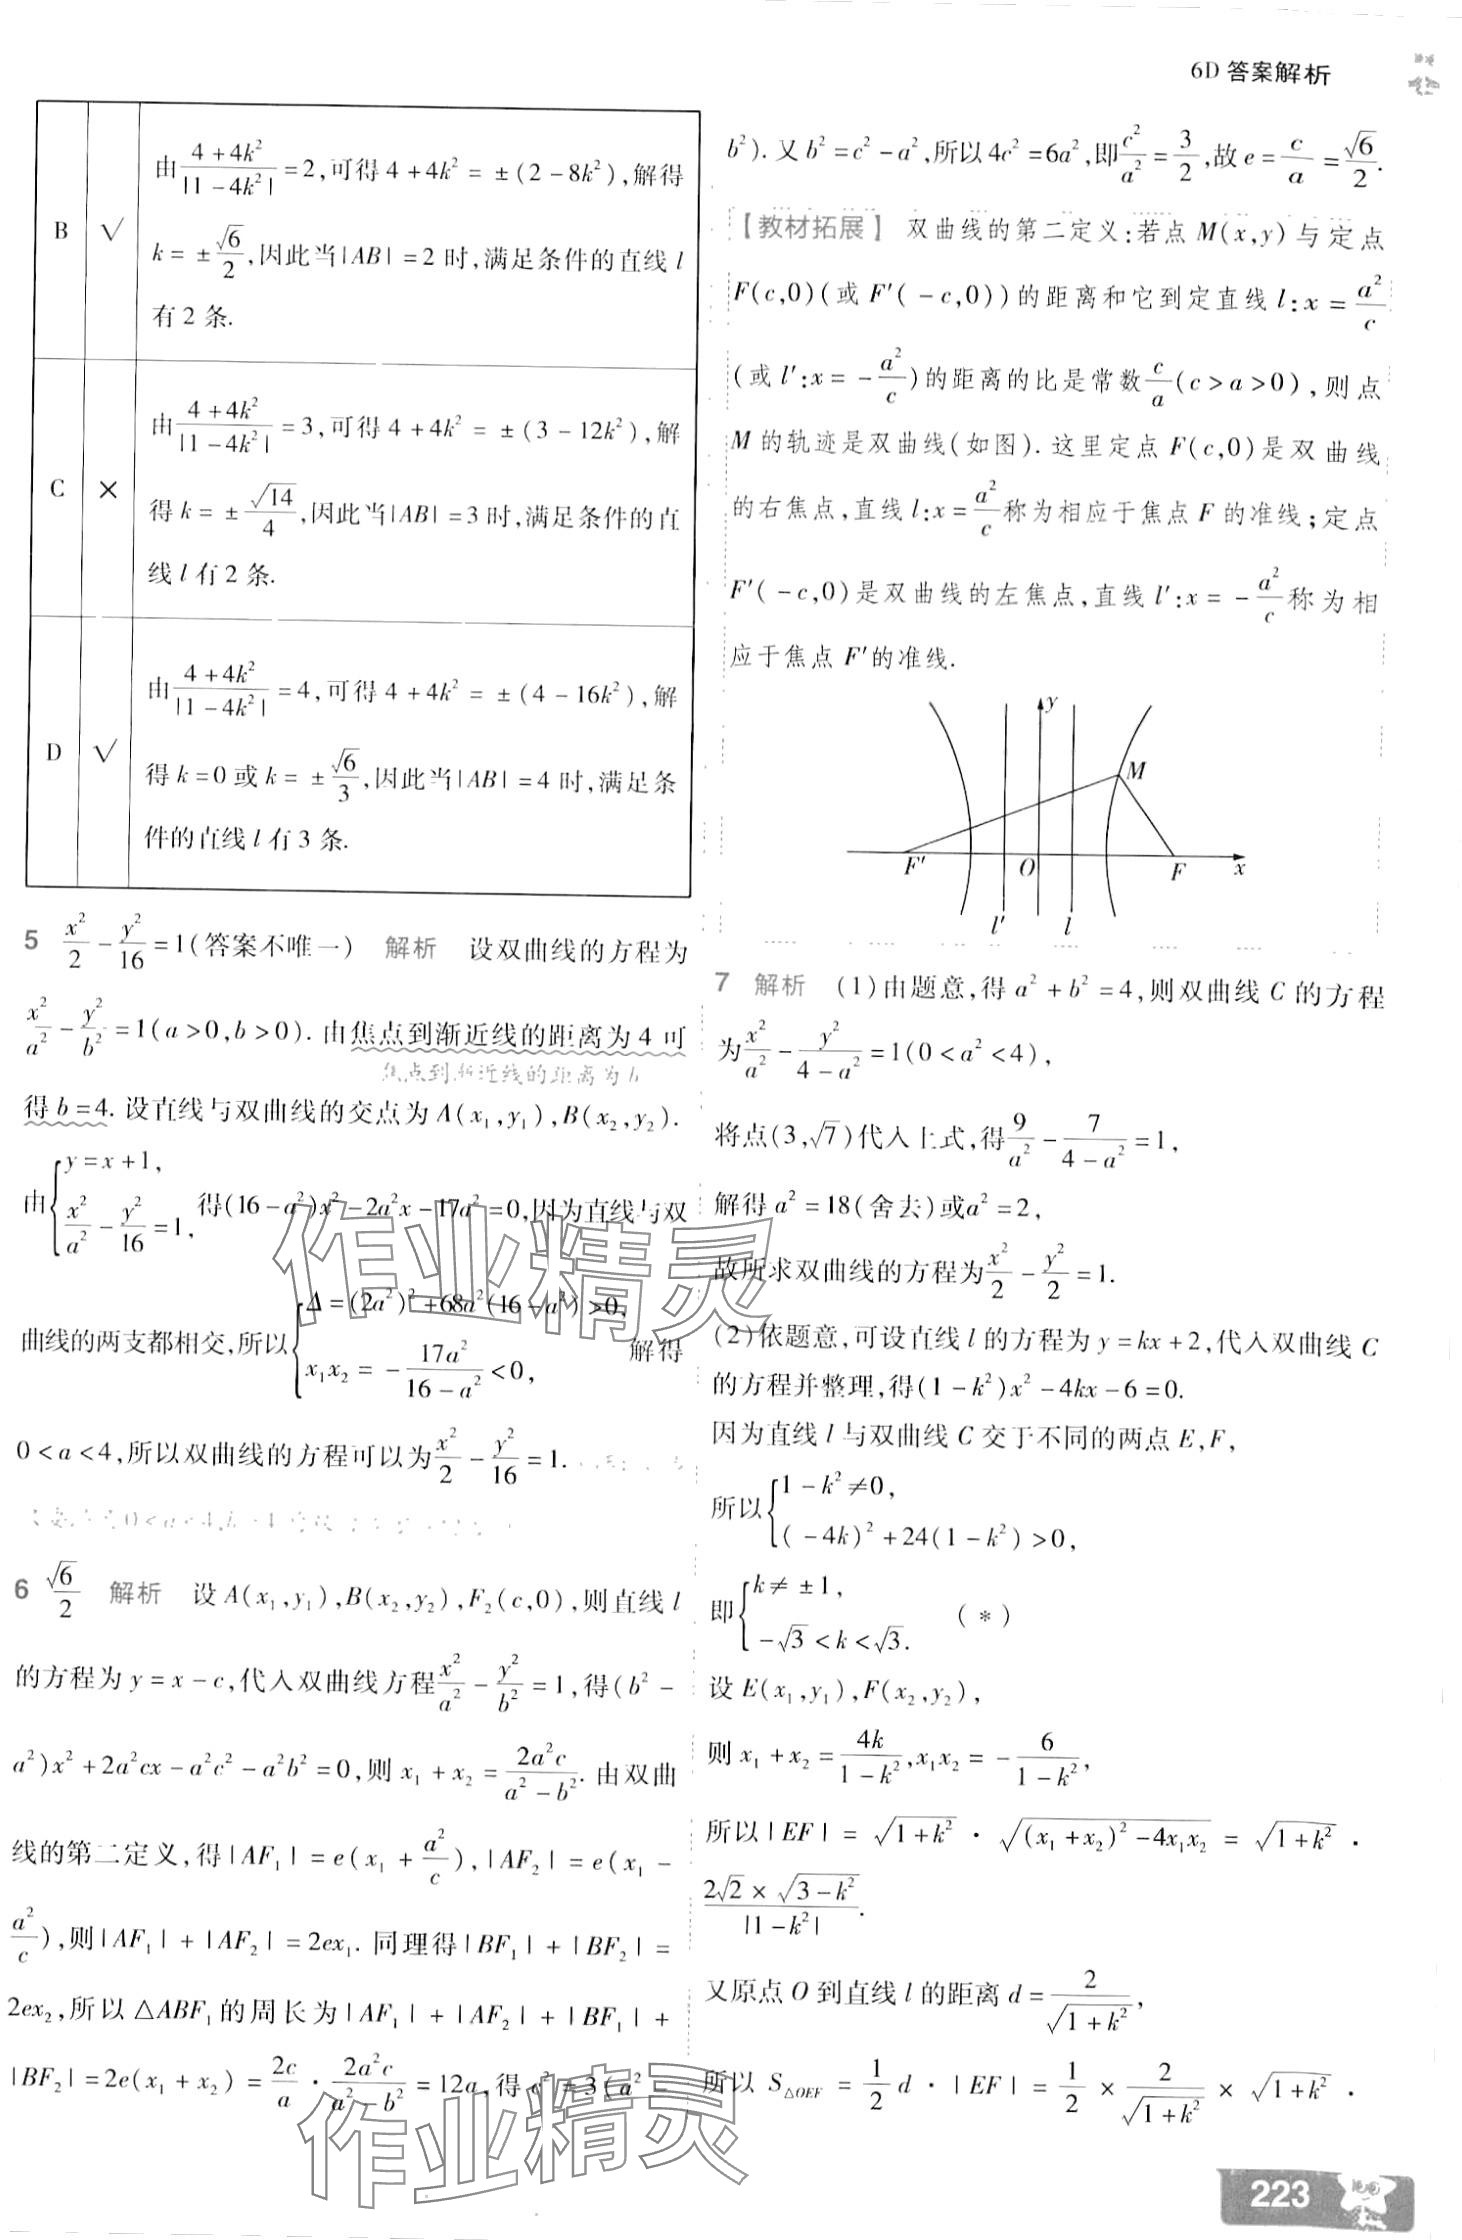 6D 答案解析
B √ 由\frac{4+4k^2}{|1-4k^2|}=2,可得4+4k^2=±(2-8k^2),解得
k=±\frac{\sqrt{6}}{2},因此当|AB|=2时,满足条件的直线l
有2条.
C × 由\frac{4+4k^2}{|1-4k^2|}=3,可得4+4k^2=±(3-12k^2),解
得k=±\frac{\sqrt{14}}{4},因此当|AB|=3时,满足条件的直
线l有2条.
D √ 由\frac{4+4k^2}{|1-4k^2|}=4,可得4+4k^2=±(4-16k^2),解
得k=0或k=±\frac{\sqrt{6}}{3},因此当|AB|=4时,满足条
件的直线l有3条.
5 \frac{x^2}{2}-\frac{y^2}{16}=1(答案不唯一) 解析 设双曲线的方程为
\frac{x^2}{a^2}-\frac{y^2}{b^2}=1(a>0,b>0).由焦点到渐近线的距离为4可
焦点到渐近线的距离为b
得b=4.设直线与双曲线的交点为A(x_1,y_1),B(x_2,y_2).
由{y=x+1, \frac{x^2}{a^2}-\frac{y^2}{16}=1, 得(16-a^2)x^2-2a^2x-17a^2=0,因为直线与双
曲线的两支都相交,所以{Δ=(2a^2)^2+68a^2(16-a^2)>0, x_1x_2=-\frac{17a^2}{16-a^2}<0, 解得
0<a<4,所以双曲线的方程可以为\frac{x^2}{2}-\frac{y^2}{16}=1.
6 \frac{\sqrt{6}}{2} 解析 设A(x_1,y_1),B(x_2,y_2),F_2(c,0),则直线l
的方程为y=x-c,代入双曲线方程\frac{x^2}{a^2}-\frac{y^2}{b^2}=1,得(b^2-
a^2)x^2+2a^2cx-a^2c^2-a^2b^2=0,则x_1+x_2=\frac{2a^2c}{a^2-b^2}.由双曲
线的第二定义,得|AF_1|=e(x_1+\frac{a^2}{c}),|AF_2|=e(x_1-
\frac{a^2}{c}),则|AF_1|+|AF_2|=2ex_1.同理得|BF_1|+|BF_2|=
2ex_2,所以△ABF_1的周长为|AF_1|+|AF_2|+|BF_1|+
|BF_2|=2e(x_1+x_2)=\frac{2c}{a}·\frac{2a^2c}{a^2-b^2}=12a,得c^2=3(a^2-
b^2).又b^2=c^2-a^2,所以4c^2=6a^2,即\frac{c^2}{a^2}=\frac{3}{2},故e=\frac{c}{a}=\frac{\sqrt{6}}{2}.
【教材拓展】 双曲线的第二定义:若点M(x,y)与定点
F(c,0)(或F′(-c,0))的距离和它到定直线l:x=\frac{a^2}{c}
(或l′:x=-\frac{a^2}{c})的距离的比是常数\frac{c}{a}(c>a>0),则点
M的轨迹是双曲线(如图).这里定点F(c,0)是双曲线
的右焦点,直线l:x=\frac{a^2}{c}称为相应于焦点F的准线;定点
F′(-c,0)是双曲线的左焦点,直线l′:x=-\frac{a^2}{c}称为相
应于焦点F′的准线.
y
M
F′ O F x
l′ l
7 解析 (1)由题意,得a^2+b^2=4,则双曲线C的方程
为\frac{x^2}{a^2}-\frac{y^2}{4-a^2}=1(0<a^2<4),
将点(3,\sqrt{7})代入上式,得\frac{9}{a^2}-\frac{7}{4-a^2}=1,
解得a^2=18(舍去)或a^2=2,
故所求双曲线的方程为\frac{x^2}{2}-\frac{y^2}{2}=1.
(2)依题意,可设直线l的方程为y=kx+2,代入双曲线C
的方程并整理,得(1-k^2)x^2-4kx-6=0.
因为直线l与双曲线C交于不同的两点E,F,
所以{1-k^2≠0, (-4k)^2+24(1-k^2)>0,
即{k≠±1, -\sqrt{3}<k<\sqrt{3}. (*)
设E(x_1,y_1),F(x_2,y_2),
则x_1+x_2=\frac{4k}{1-k^2},x_1x_2=-\frac{6}{1-k^2},
所以|EF|=\sqrt{1+k^2}·\sqrt{(x_1+x_2)^2-4x_1x_2}=\sqrt{1+k^2}·
\frac{2\sqrt{2}×\sqrt{3-k^2}}{|1-k^2|}.
又原点O到直线l的距离d=\frac{2}{\sqrt{1+k^2}},
所以S_{△OEF}=\frac{1}{2}d·|EF|=\frac{1}{2}×\frac{2}{\sqrt{1+k^2}}×\sqrt{1+k^2}·
作业精灵
作业精灵
223